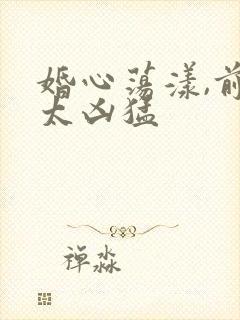 婚心荡漾,前
太凶猛
禅淼